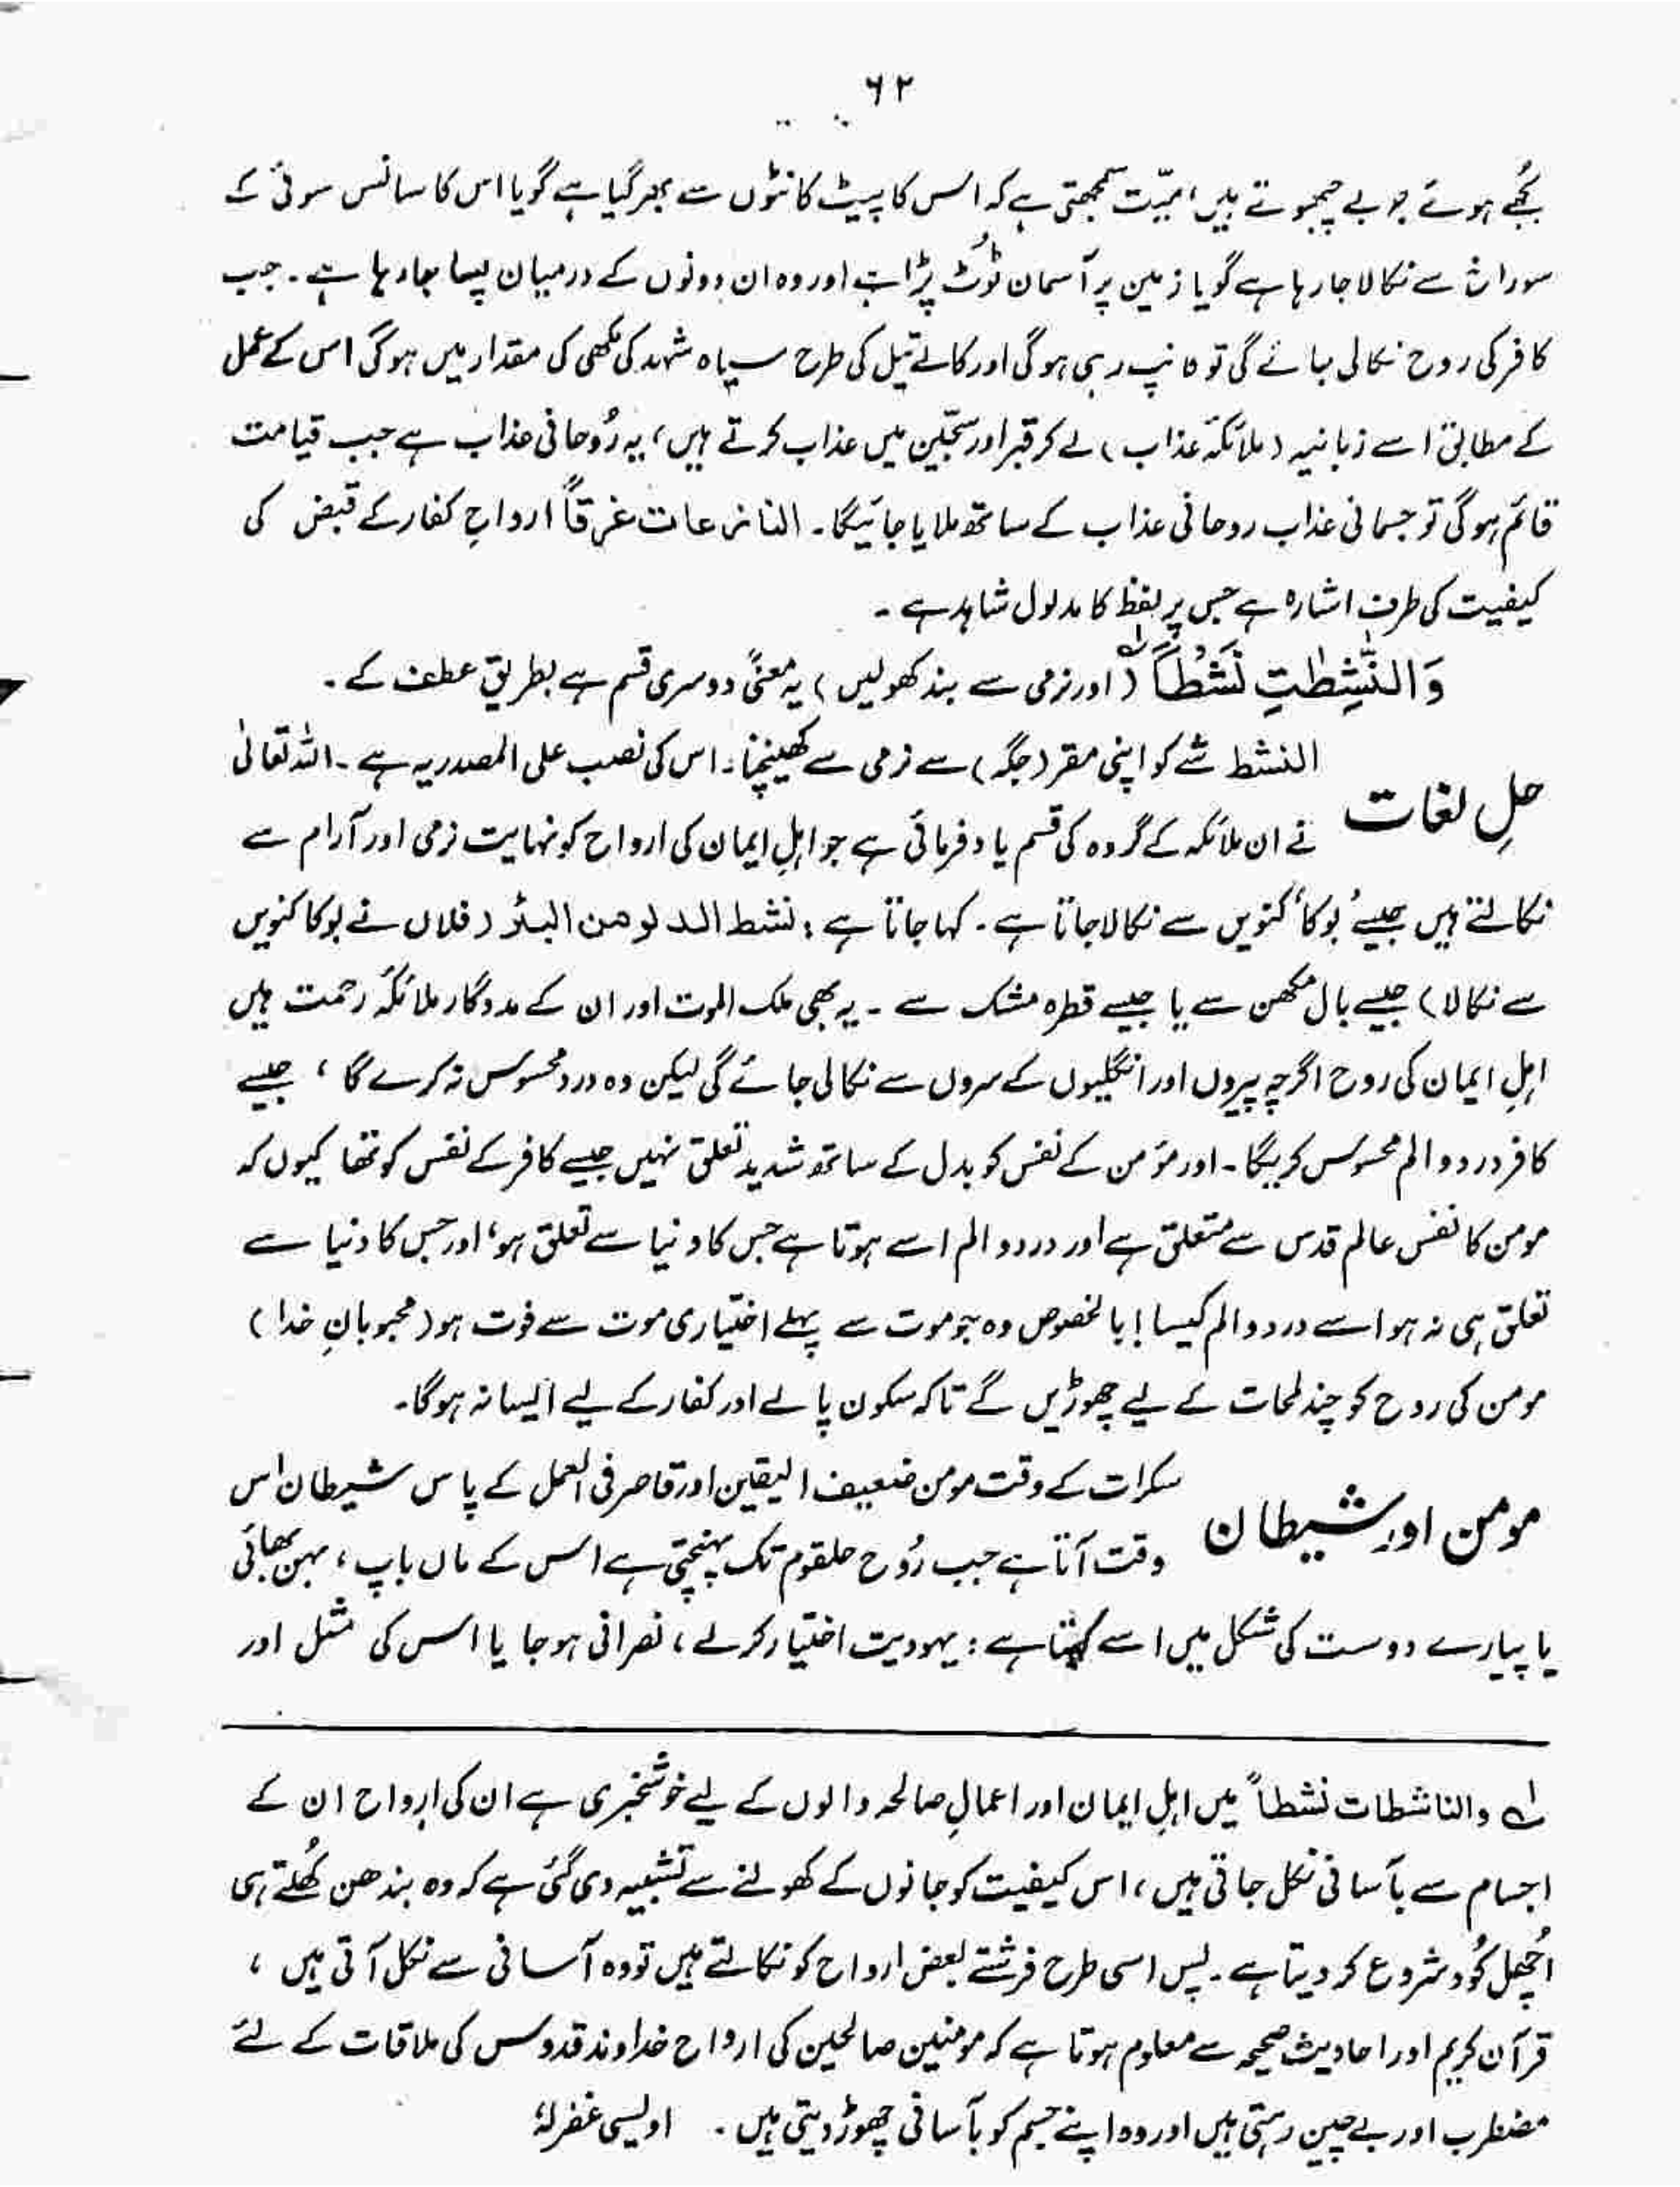 ۶۲
بجھے ہوئے جو بے چبھوتے ہیں، میّت سمجھتی ہے کہ اس کا پیٹ کانٹوں سے بھر گیا ہے گویا اس کا سانس سوئی کے
سوراخ سے نکالا جا رہا ہے گویا زمین پر آسمان ٹوٹ پڑا ہے اور وہ ان دونوں کے درمیان پسا جا رہا ہے۔ جب
کافر کی روح نکالی جائے گی تو کانپ رہی ہوگی اور کالے تیل کی طرح سیاہ شہد کی مکھی کی مقدار میں ہوگی اس کے عمل
کے مطابق اسے زبانیہ (ملائکۂ عذاب) لے کر قبر اور سجّین میں عذاب کرتے ہیں، یہ رُوحانی عذاب ہے جب قیامت
قائم ہوگی تو جسمانی عذاب روحانی عذاب کے ساتھ ملایا جائیگا۔ النازعات غرقاً ارواحِ کفار کے قبض کی
کیفیت کی طرف اشارہ ہے جس پر لفظ کا مدلول شاہد ہے۔
وَالنّٰشِطٰتِ نَشْطًا ؂۱ (اور نرمی سے بند کھولیں) یہ معنیً دوسری قسم ہے بطریق عطف کے۔
حلِ لغات
النشط شے کو اپنی مقر (جگہ) سے نرمی سے کھینچنا۔ اس کی نصب علی المصدریہ ہے۔ اللہ تعالیٰ
نے ان ملائکہ کے گروہ کی قسم یاد فرمائی ہے جو اہلِ ایمان کی ارواح کو نہایت نرمی اور آرام سے
نکالتے ہیں جیسے بُوکا کنویں سے نکالا جاتا ہے۔ کہا جاتا ہے: نشط الدلو من البئر (فلاں نے بوکا کنویں
سے نکالا) جیسے بال مکھن سے یا جیسے قطرہ مشک سے۔ یہ بھی ملک الموت اور ان کے مددگار ملائکۂ رحمت ہیں
اہلِ ایمان کی روح اگرچہ پیروں اور انگلیوں کے سروں سے نکالی جائے گی لیکن وہ درد محسوس نہ کرے گا، جیسے
کافر درد و الم محسوس کریگا۔ اور مؤمن کے نفس کو بدل کے ساتھ شدید تعلق نہیں جیسے کافر کے نفس کو تھا کیوں کہ
مومن کا نفس عالم قدس سے متعلق ہے اور درد و الم اسے ہوتا ہے جس کا دنیا سے تعلق ہو، اور جس کا دنیا سے
تعلق ہی نہ ہو اسے درد و الم کیسا! بالخصوص وہ جو موت سے پہلے اختیاری موت سے فوت ہو (محبوبانِ خدا)
مومن کی روح کو چند لمحات کے لیے چھوڑیں گے تاکہ سکون پالے اور کفار کے لیے ایسا نہ ہوگا۔
مومن اور شیطان
سکرات کے وقت مومن ضعیف الیقین اور قاصر فی العمل کے پاس شیطان اس
وقت آتا ہے جب رُوح حلقوم تک پہنچتی ہے اس کے ماں باپ، بہن بھائی
یا پیارے دوست کی شکل میں اسے کہتا ہے: یہودیت اختیار کرلے، نصرانی ہو جا یا اس کی مثل اور
؂۱ والناشطات نشطاً میں اہلِ ایمان اور اعمالِ صالحہ والوں کے لیے خوشخبری ہے ان کی ارواح ان کے
اجسام سے بآسانی نکل جاتی ہیں، اس کیفیت کو جانوں کے کھولنے سے تشبیہ دی گئی ہے کہ وہ بندھن کُھلتے ہی
اُچھل کُود شروع کر دیتا ہے۔ پس اسی طرح فرشتے بعض ارواح کو نکالتے ہیں تو وہ آسانی سے نکل آتی ہیں،
قرآن کریم اور احادیث صحیحہ سے معلوم ہوتا ہے کہ مومنین صالحین کی ارواح خداوند قدوس کی ملاقات کے لئے
مضطرب اور بے چین رہتی ہیں اور وہ اپنے جسم کو بآسانی چھوڑ دیتی ہیں۔ اویسی غفرلہٗ